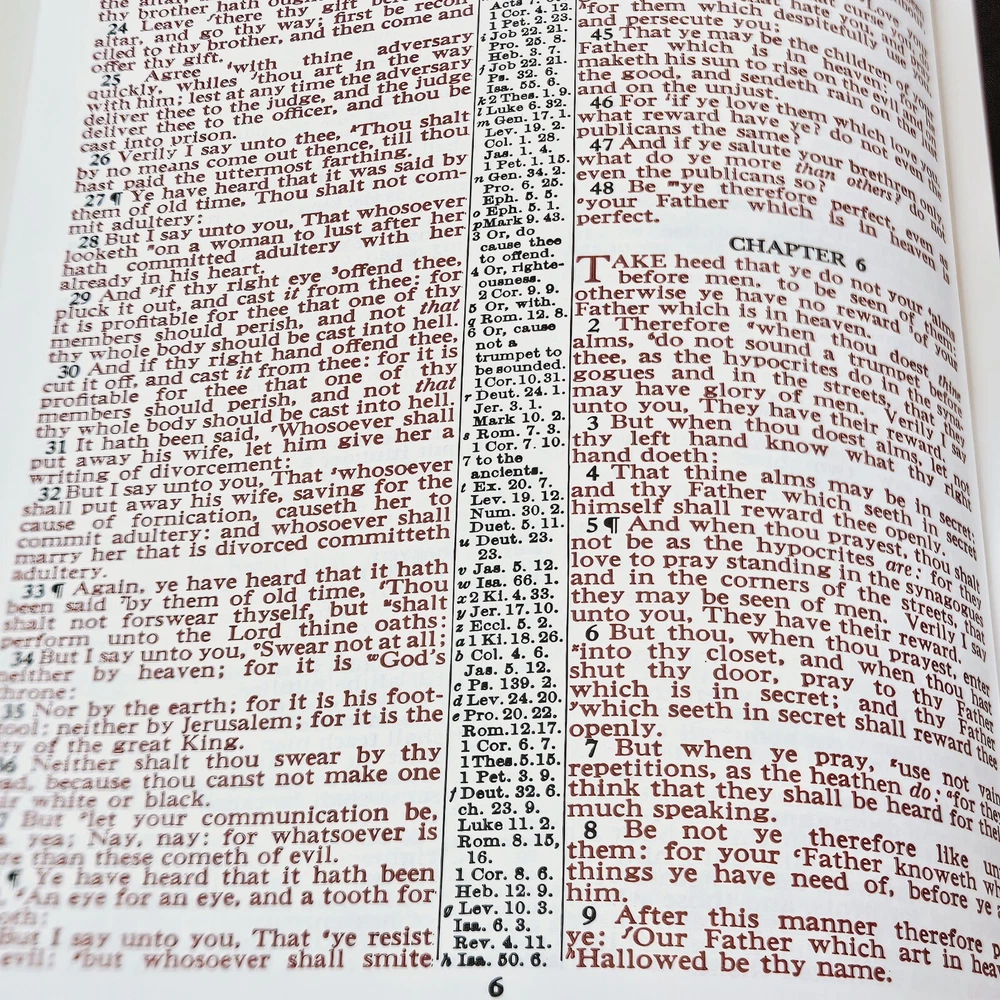 thy brother hath ought
24 Leave there thy gift before
altar, and go thy way; first be recon
ciled to thy brother, and then come and
offer thy gift.
25 Agree with thine adversary
quickly, whiles thou art in the way
with him; lest at any time the adversary
deliver thee to the judge, and the judge
deliver thee to the officer, and thou be
cast into prison.
26 Verily I say unto thee, Thou shalt
by no means come out thence, till thou
hast paid the uttermost farthing.
27 ¶ Ye have heard that it was said by
them of old time, Thou shalt not com-
mit adultery:
28 But I say unto you, That whosoever
looketh on a woman to lust after her
hath committed adultery with her
already in his heart.
29 And if thy right eye offend thee,
pluck it out, and cast it from thee: for
it is profitable for thee that one of thy
members should perish, and not that
thy whole body should be cast into hell.
30 And if thy right hand offend thee,
cut it off, and cast it from thee: for it is
profitable for thee that one of thy
members should perish, and not that
thy whole body should be cast into hell.
31 It hath been said, Whosoever shall
put away his wife, let him give her a
writing of divorcement:
32 But I say unto you, That whosoever
shall put away his wife, saving for the
cause of fornication, causeth her to
commit adultery: and whosoever shall
marry her that is divorced committeth
adultery.
33 ¶ Again, ye have heard that it hath
been said by them of old time, Thou
shalt not forswear thyself, but shalt
perform unto the Lord thine oaths:
34 But I say unto you, Swear not at all;
neither by heaven; for it is God's
throne:
35 Nor by the earth; for it is his foot-
tool: neither by Jerusalem; for it is the
ty of the great King.
36 Neither shalt thou swear by thy
ad, because thou canst not make one
ir white or black.
But let your communication be,
yea; Nay, nay: for whatsoever is
re than these cometh of evil.
¶ Ye have heard that it hath been
An eye for an eye, and a tooth for
oth:
But I say unto you, That ye resist
evil: but whosoever shall smite
Acts
1 Cor. 4. 12.
1 Pet. 2. 23.
i Job 22. 21.
Pro. 25. 8.
Heb. 3. 7.
j Job 22. 21.
Ps. 32. 6.
Isa. 55. 6.
k 2 Thes. 1. 9.
l Luke 6. 32.
m Gen. 17. 1.
Lev. 19. 2.
Col. 1. 28.
Jas. 1. 4.
1 Pet. 1. 15.
n Gen. 34. 2.
Pro. 6. 25.
Eph. 5. 5.
o Eph. 5. 1.
p Mark 9. 43.
3 Or, do
cause thee
to offend.
4 Or, righte-
ousness.
2 Cor. 9. 9.
5 Or, with.
q Rom. 12. 8.
6 Or, cause
not a
trumpet to
be sounded.
1 Cor. 10. 31.
r Deut. 24. 1.
Jer. 3. 1.
Mark 10. 2.
s Rom. 7. 3.
1 Cor. 7. 10.
7 to the
ancients.
t Ex. 20. 7.
Lev. 19. 12.
Num. 30. 2.
Duet. 5. 11.
u Deut. 23.
23.
v Jas. 5. 12.
w Isa. 66. 1.
x 2 Ki. 4. 33.
y Jer. 17. 10.
z Eccl. 5. 2.
a 1 Ki. 18. 26.
b Col. 4. 6.
Jas. 5. 12.
c Ps. 139. 2.
d Lev. 24. 20.
e Pro. 20. 22.
Rom. 12. 17.
1 Cor. 6. 7.
1 Thes. 5. 15.
1 Pet. 3. 9.
f Deut. 32. 6.
ch. 23. 9.
Luke 11. 2.
Rom. 8. 15,
16.
1 Cor. 8. 6.
Heb. 12. 9.
g Lev. 10. 3.
Isa. 6. 3.
Rev. 4. 11.
h Isa. 50. 6.
for them which despitefully use you
and persecute you:
45 That ye may be the children of your
Father which is in heaven: for he
maketh his sun to rise on the evil and on
the good, and sendeth rain on the just
and on the unjust.
46 For if ye love them which love you,
what reward have ye? do not even the
publicans the same?
47 And if ye salute your brethren only,
what do ye more than others? do not
even the publicans so?
48 Be ye therefore perfect, even as
your Father which is in heaven is
perfect.
CHAPTER 6
TAKE heed that ye do not your alms
before men, to be seen of them:
otherwise ye have no reward of your
Father which is in heaven.
2 Therefore when thou doest thine
alms, do not sound a trumpet before
thee, as the hypocrites do in the syna-
gogues and in the streets, that they
may have glory of men. Verily I say
unto you, They have their reward.
3 But when thou doest alms, let not
thy left hand know what thy right
hand doeth:
4 That thine alms may be in secret:
and thy Father which seeth in secret
himself shall reward thee openly.
5 ¶ And when thou prayest, thou shalt
not be as the hypocrites are: for they
love to pray standing in the synagogues
and in the corners of the streets, that
they may be seen of men. Verily I say
unto you, They have their reward.
6 But thou, when thou prayest, enter
into thy closet, and when thou hast
shut thy door, pray to thy Father
which is in secret; and thy Father
which seeth in secret shall reward thee
openly.
7 But when ye pray, use not vain
repetitions, as the heathen do: for they
think that they shall be heard for their
much speaking.
8 Be not ye therefore like un
them: for your Father knoweth wh
things ye have need of, before ye a
him.
9 After this manner therefore p
ye: Our Father which art in heav
Hallowed be thy name.
6